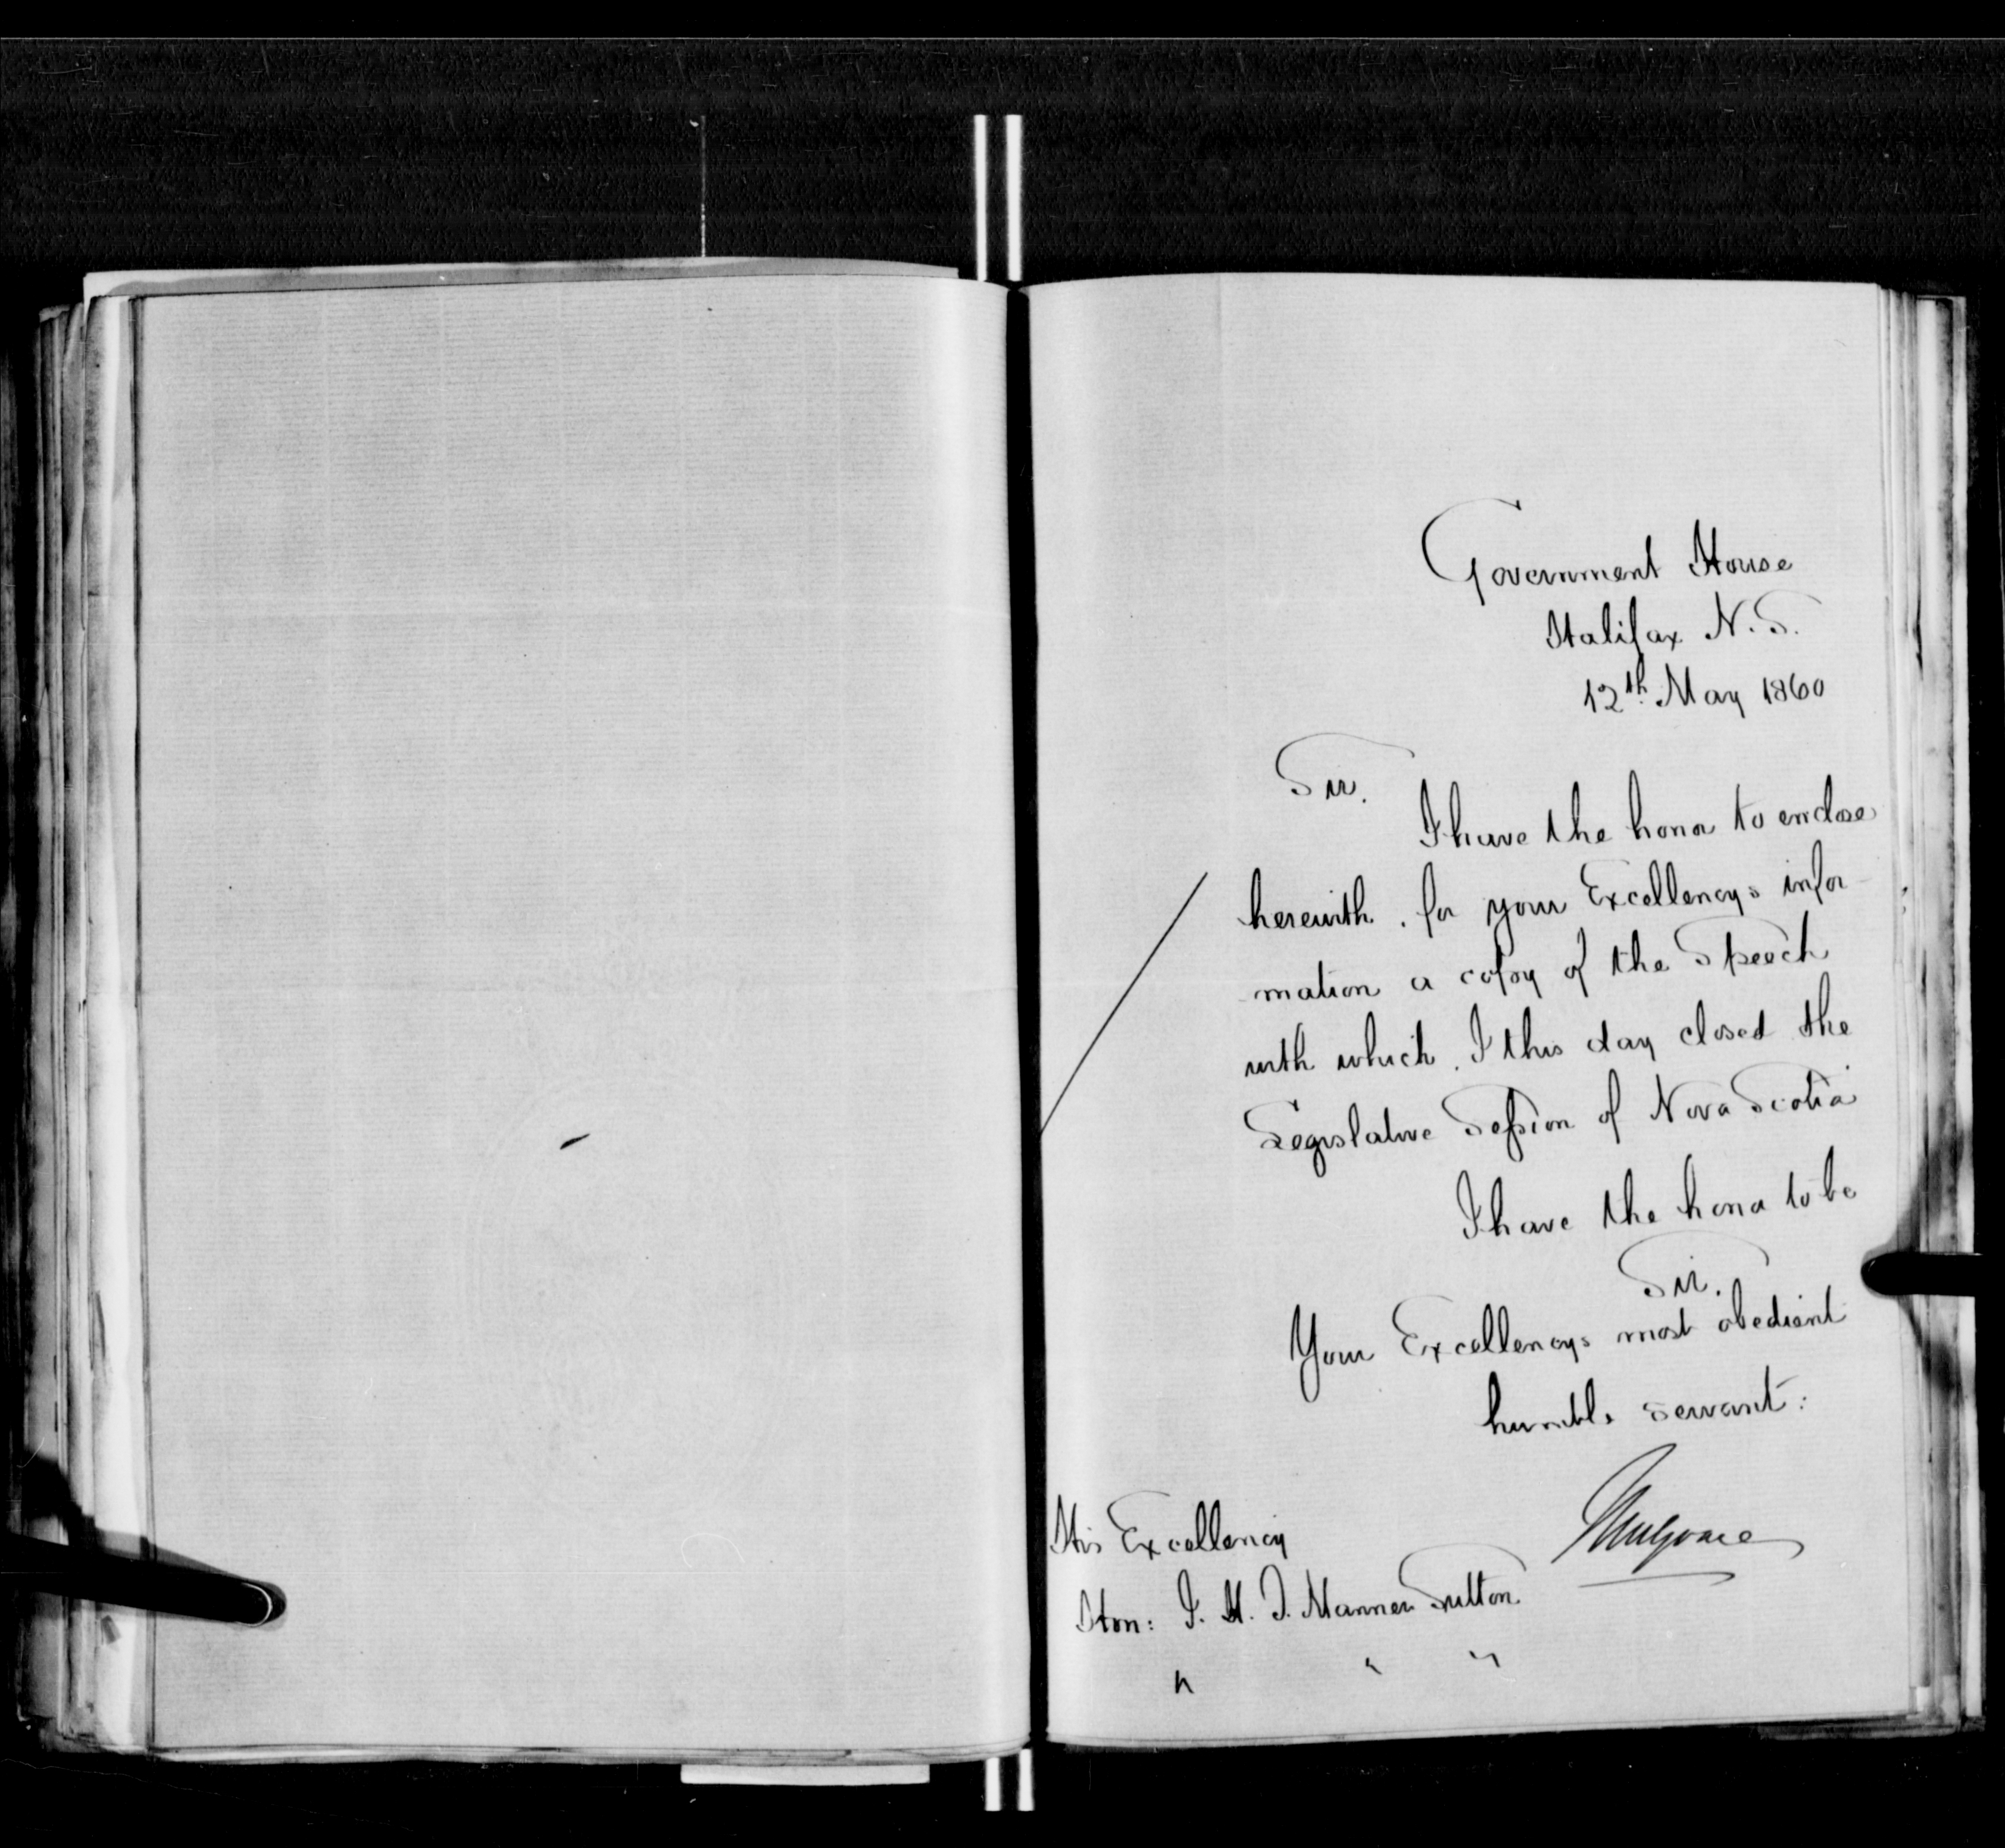 Government House
Halifax N.S.
12th May 1860
Sir.
I have the honor to enclose
herewith, for your Excellencys infor-
mation a copy of the Speech
with which, I this day closed the
Legislative Session of Nova Scotia
I have the honor to be
Sir.
Your Excellencys most obedient
humble servant:
Mulgrave
His Excellency
Hon: J. H. T. Manners Sutton
" " "